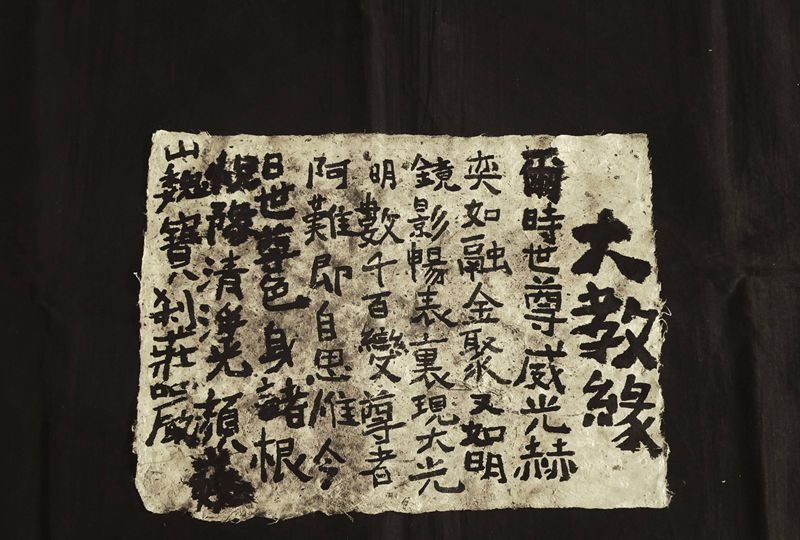 大教緣
爾時世尊威光赫
奕如融金聚又如明
鏡影暢表裏現大光
明數千百變尊者
阿難即自思惟今
日世尊色身諸根
清淨光顏
巍寶剎莊嚴